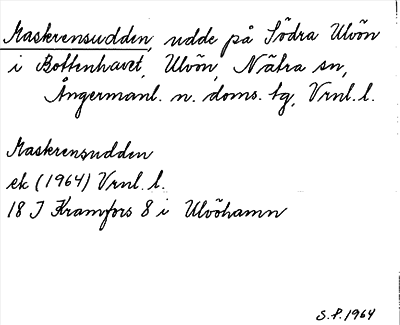 Maskrensudden, udde på Södra Ulvön
i Bottenhavet, Ulvön, Nätra sn,
Ångermanl. n. doms. tg, Vrnl. l.
Maskrensudden
ek (1964) Vrnl. l.
18 J Kramfors 8 i Ulvöhamn
S.P. 1964